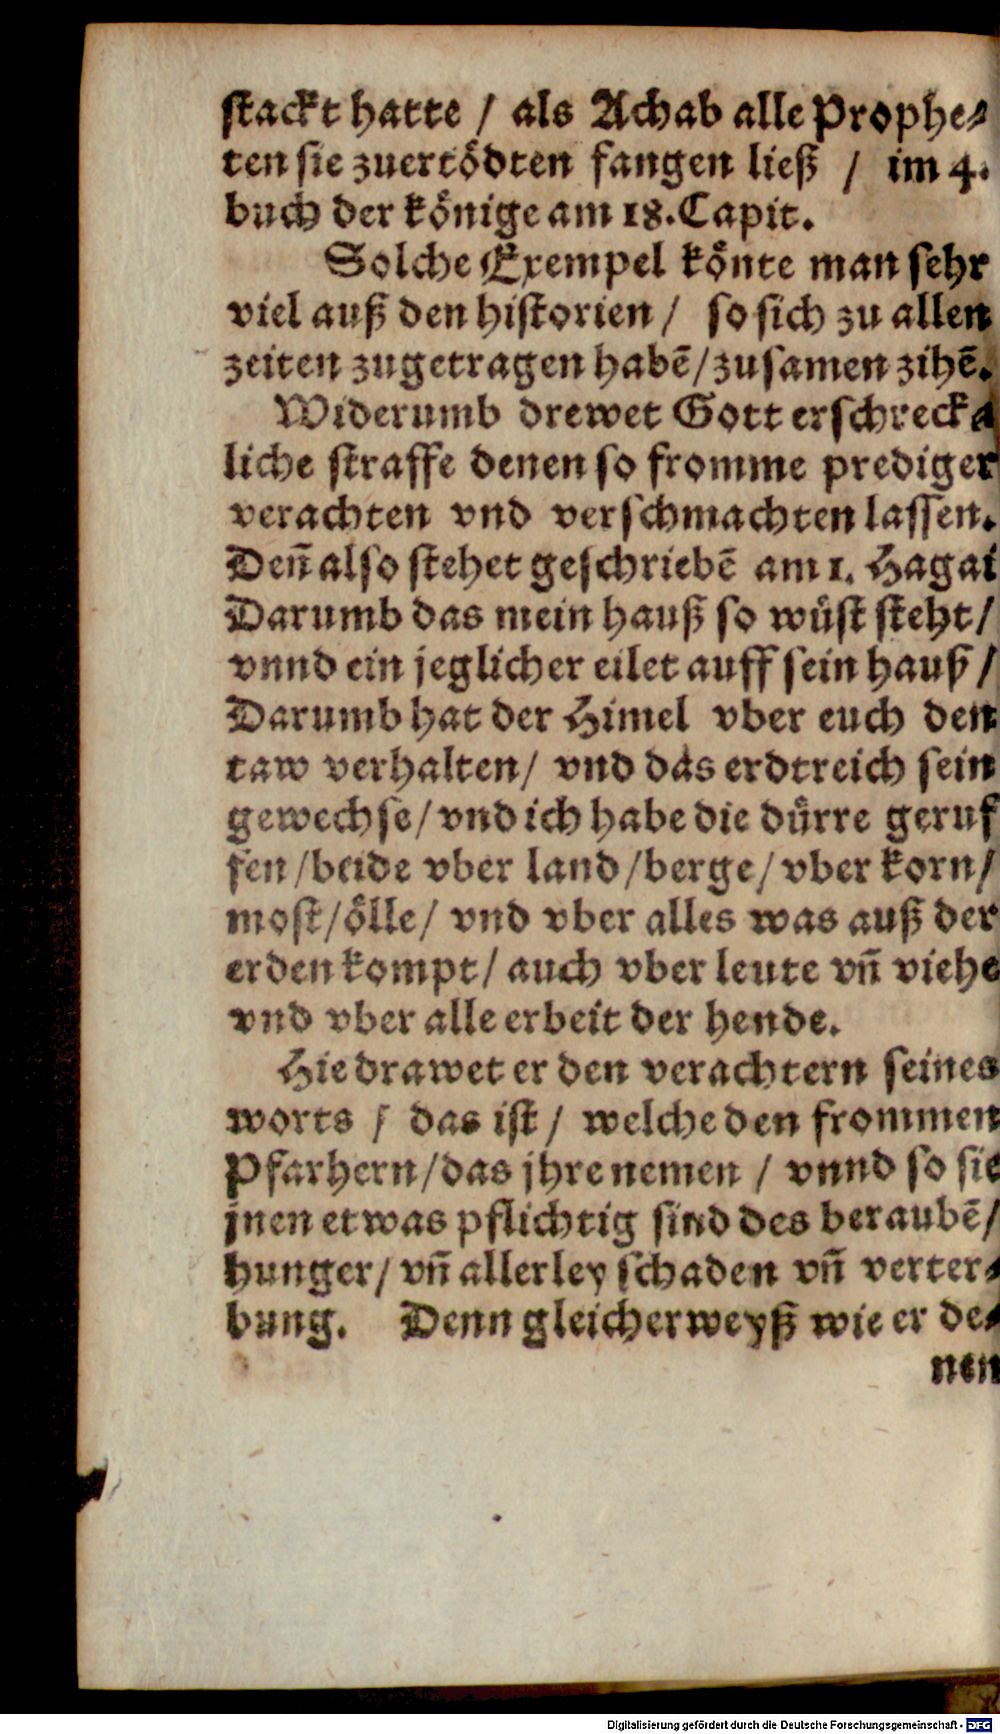 stackt hatte / als Achab alle Prophe⸗
ten sie zuertödten fangen ließ / im 4.
buch der könige am 18. Capit.
Solche Exempel könte man sehr
viel auß den historien / so sich zu allen
zeiten zugetragen habẽ / zusamen zihẽ.
Widerumb drewet Gott erschreck⸗
liche straffe denen so fromme prediger
verachten vnd verschmachten lassen.
Deñ also stehet geschriebẽ am 1. Hagai
Darumb das mein hauß so wüst steht /
vnnd ein jeglicher eilet auff sein hauß /
Darumb hat der Himel vber euch den
taw verhalten / vnd das erdtreich sein
gewechse / vnd ich habe die dürre geruf
fen / beide vber land / berge / vber korn /
most / ölle / vnd vber alles was auß der
erden kompt / auch vber leute vñ viehe
vnd vber alle erbeit der hende.
Hie drawet er den verachtern seines
worts / das ist / welche den frommen
Pfarhern / das jhre nemen / vnnd so sie
jnen etwas pflichtig sind des beraubẽ /
hunger / vñ allerley schaden vñ verter⸗
bung. Denn gleicherweyß wie er de⸗
nen
Digitalisierung gefördert durch die Deutsche Forschungsgemeinschaft - DFG